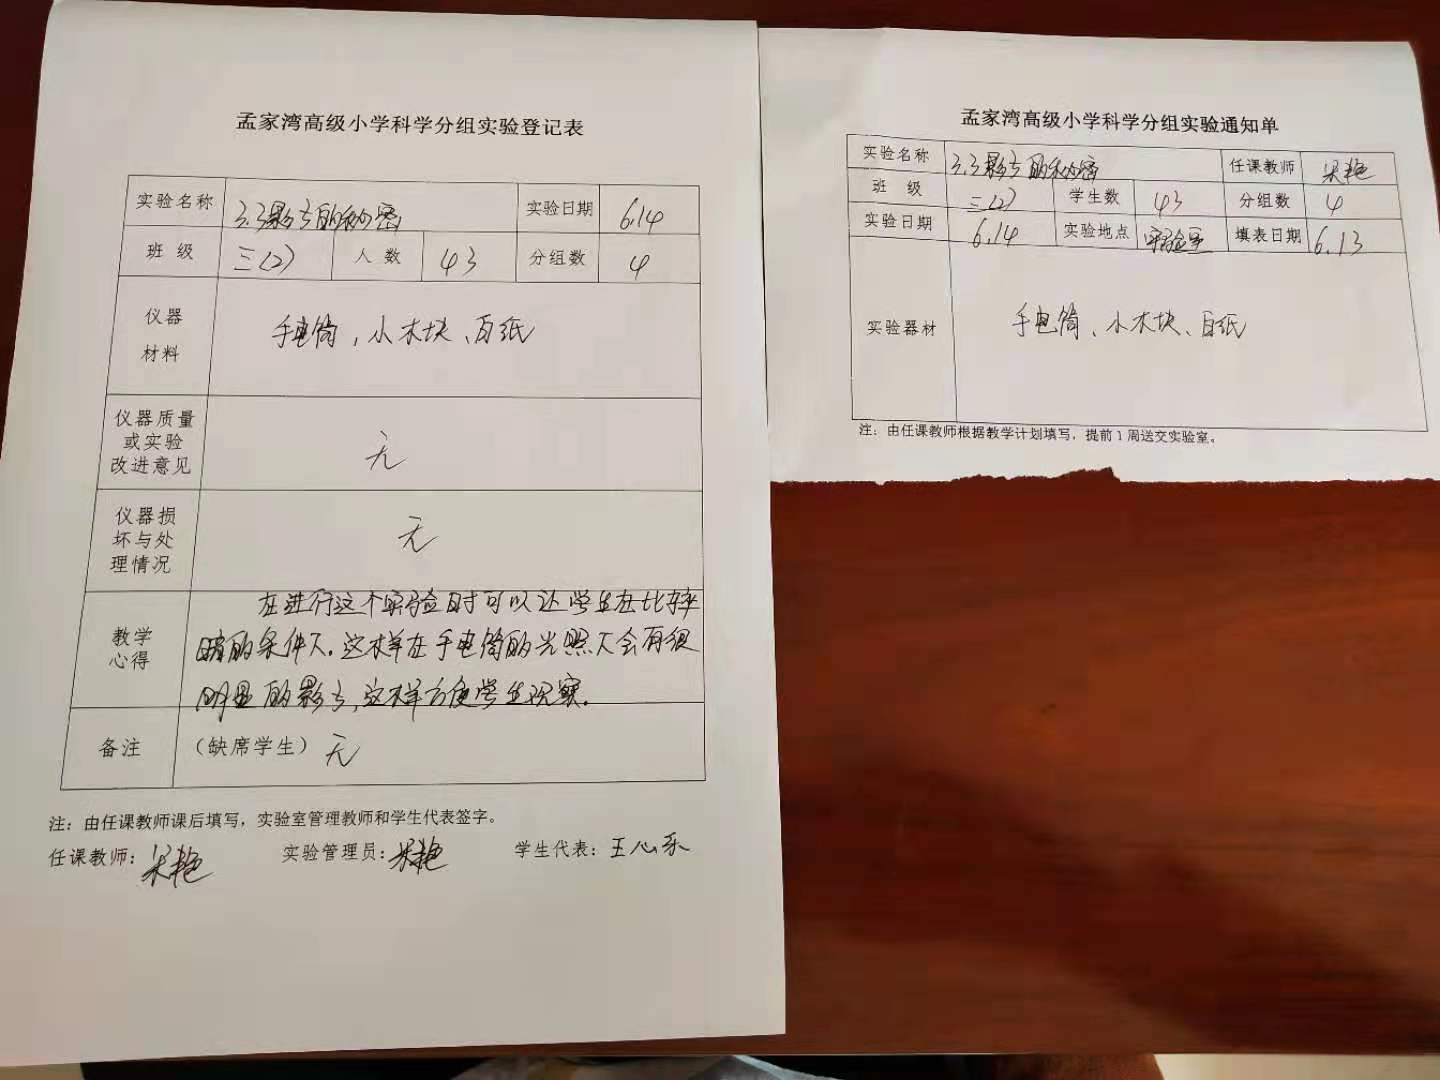 孟家湾高级小学科学分组实验登记表
实验名称 3.3影子的秘密 实验日期 6.14
班 级 三(2) 人 数 43 分组数 4
仪器
材料
手电筒,小木块、白纸
仪器质量
或实验
改进意见
无
仪器损
坏与处
理情况
无
教学
心得
在进行这个实验时可以让学生在比较
暗的条件下.这样在手电筒的光照下会有很
明显的影子,这样方便学生观察.
备注 (缺席学生) 无
注:由任课教师课后填写,实验室管理教师和学生代表签字。
任课教师: 实验管理员: 学生代表:王心乐
孟家湾高级小学科学分组实验通知单
实验名称 3.3影子的秘密 任课教师
班 级 三(2) 学生数 43 分组数 4
实验日期 6.14 实验地点 实验室 填表日期 6.13
实验器材 手电筒、小木块、白纸
注:由任课教师根据教学计划填写,提前1周送交实验室。